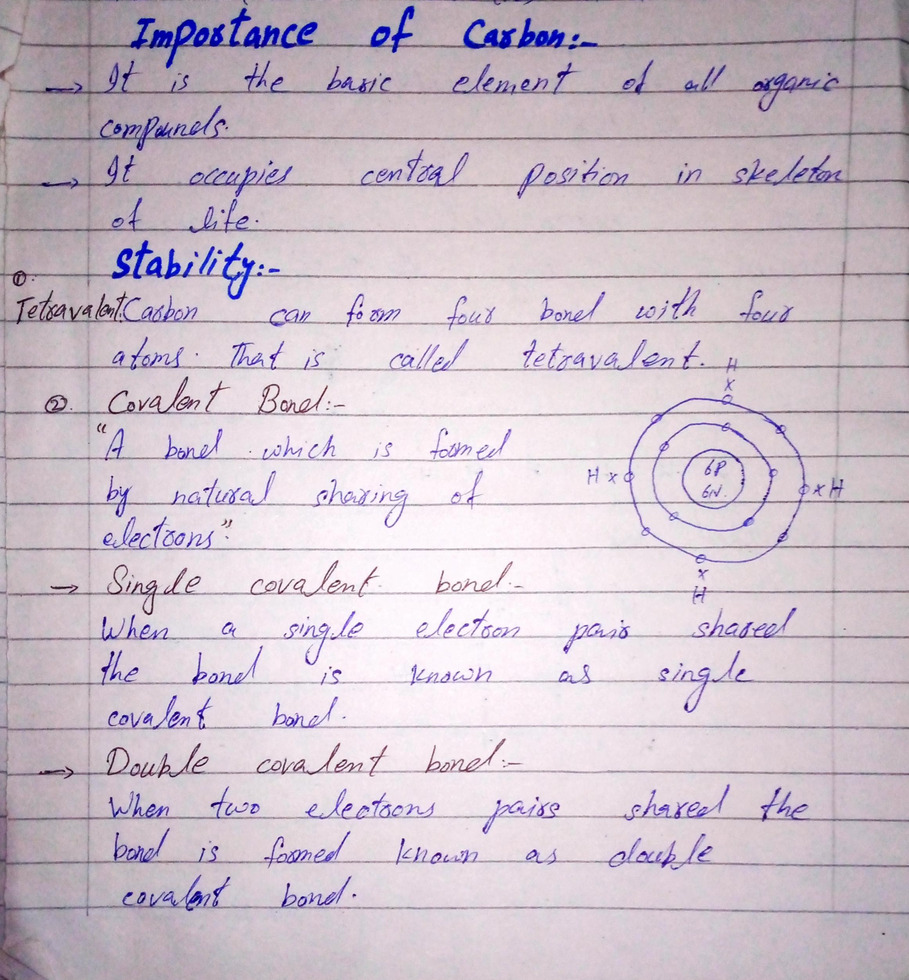 Importance of Carbon:-
→ It is the basic element of all organic
compounds.
→ It occupies central position in skeleton
of life.
Stability:-
①.
Tetravalent: Carbon can form four bond with four
atoms. That is called tetravalent.
② Covalent Bond:-
"A bond which is formed
by natural sharing of
electrons".
H
x
H x
6P
6N.
x H
x
H
→ Single covalent bond:-
When a single electron pair shared
the bond is known as single
covalent bond.
→ Double covalent bond:-
When two electrons pairs shared the
bond is formed known as double
covalent bond.